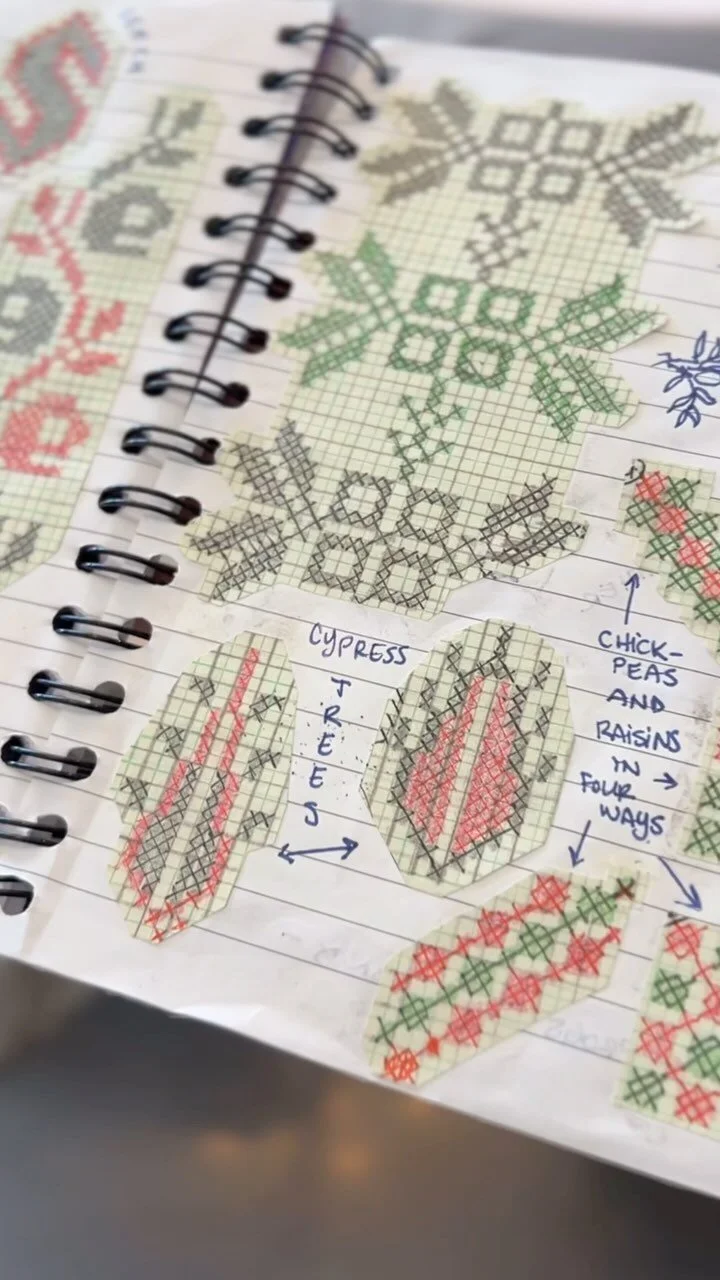 CYPRESS
TREES
CHICK-
PEAS
AND
RAISINS
IN
FOUR
WAYS
1)